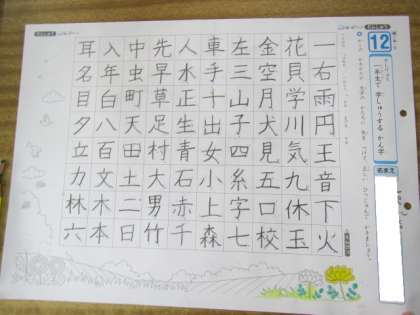 12
一年生で 学しゅうする かん字
なまえ
一右雨円王音下火
花貝学川気九休玉
金空月犬見五口校
左三山子四糸字七
車手十出女小上森
人水正生青石赤千
先早草足村大男竹
中虫町天田土二日
入年白八百文木本
耳名目夕立力林六